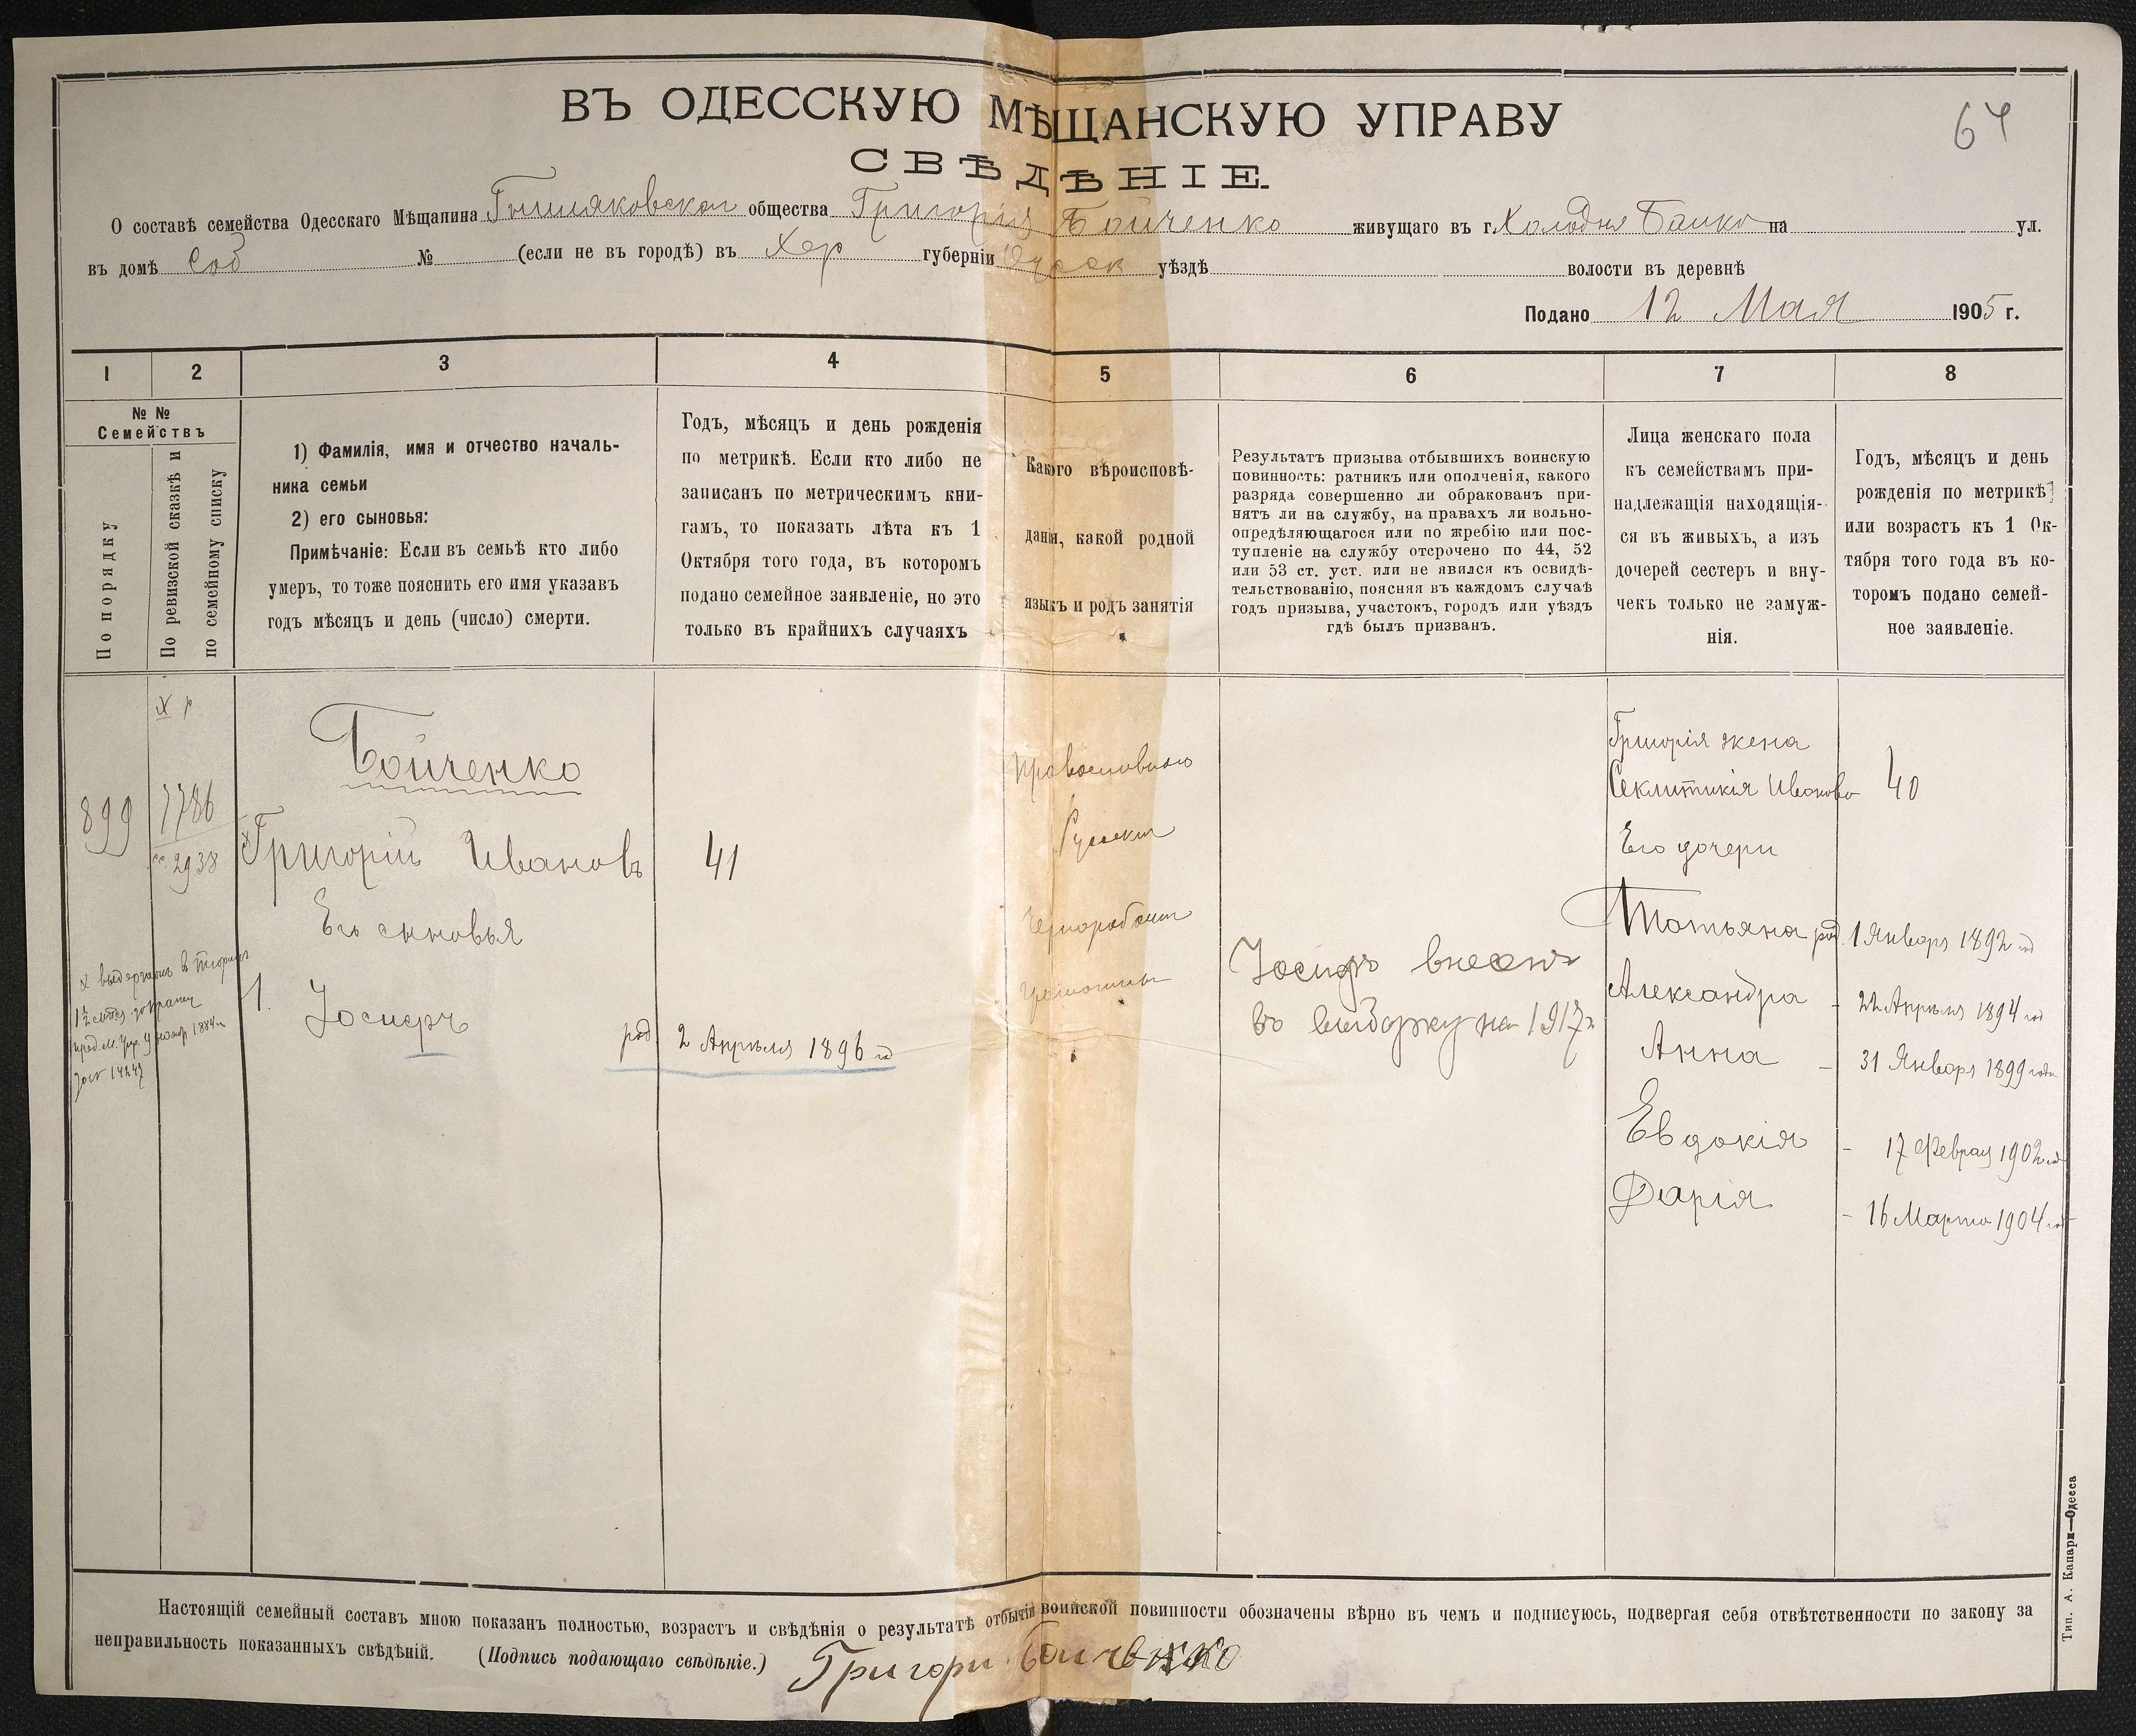 64
ВЪ ОДЕССКУЮ МѢЩАНСКУЮ УПРАВУ
СВѢДѢНІЕ.
О составѣ семейства Одесскаго Мѣщанина общества Григорія Бойченко живущаго въ г. Холодня Балко на ул.
въ домѣ Соб № (если не въ городѣ) въ Хер губерніи Одесск уѣздѣ волости въ деревнѣ
Подано 12 Мая 1905 г.
1 2 3 4 5 6 7 8
№ №
Семействъ
По порядку
По ревизской сказкѣ и
по семейному списку
1) Фамилія, имя и отчество началь-
ника семьи
2) его сыновья:
Примѣчаніе: Если въ семьѣ кто либо
умеръ, то тоже пояснить его имя указавъ
годъ мѣсяцъ и день (число) смерти.
Годъ, мѣсяцъ и день рожденія
по метрикѣ. Если кто либо не
записанъ по метрическимъ кни-
гамъ, то показать лѣта къ 1
Октября того года, въ которомъ
подано семейное заявленіе, но это
только въ крайнихъ случаяхъ
Какого вѣроисповѣ-
данія, какой родной
языкъ и родъ занятія
Результатъ призыва отбывшихъ воинскую
повинность: ратникъ или ополченія, какого
разряда совершенно ли обракованъ при-
нятъ ли на службу, на правахъ ли вольно-
опредѣляющагося или по жребію или пос-
тупленіе на службу отсрочено по 44, 52
или 53 ст. уст. или не явился къ освидѣ-
тельствованію, поясняя въ каждомъ случаѣ
годъ призыва, участокъ, городъ или уѣздъ
гдѣ былъ призванъ.
Лица женскаго пола
къ семействамъ при-
надлежащія находящія-
ся въ живыхъ, а изъ
дочерей сестеръ и вну-
чекъ только не замуж-
нія.
Годъ, мѣсяцъ и день
рожденія по метрикѣ
или возрастъ къ 1 Ок-
тября того года въ ко-
торомъ подано семей-
ное заявленіе.
899
1786
2938
Бойченко
Григорій Ивановъ
41
Его сыновья
1. Іосифъ
род 2 Апрѣля 1896 го
Православного
Русский
Чернорабочий
Іосифъ внесенъ
въ выборку на 1917 г
Григорія жена
Секлитикія Иванова 40
Его дочери
Татьяна род. 1 Января 1892 год
Александра - 22 Апрѣля 1894 год
Анна - 31 Января 1899 года
Евдокія - 17 Феврал 1902 год
Дарія - 16 Марта 1904 год
Настоящій семейный составъ мною показанъ полностью, возрастъ и свѣдѣнія о результатѣ отбытія воинской повинности обозначены вѣрно въ чемъ и подписуюсь, подвергая себя отвѣтственности по закону за
неправильность показанныхъ свѣдѣній. (Подпись подающаго свѣдѣніе.) Григори Бойченко
Тип. А. Капари—Одесса